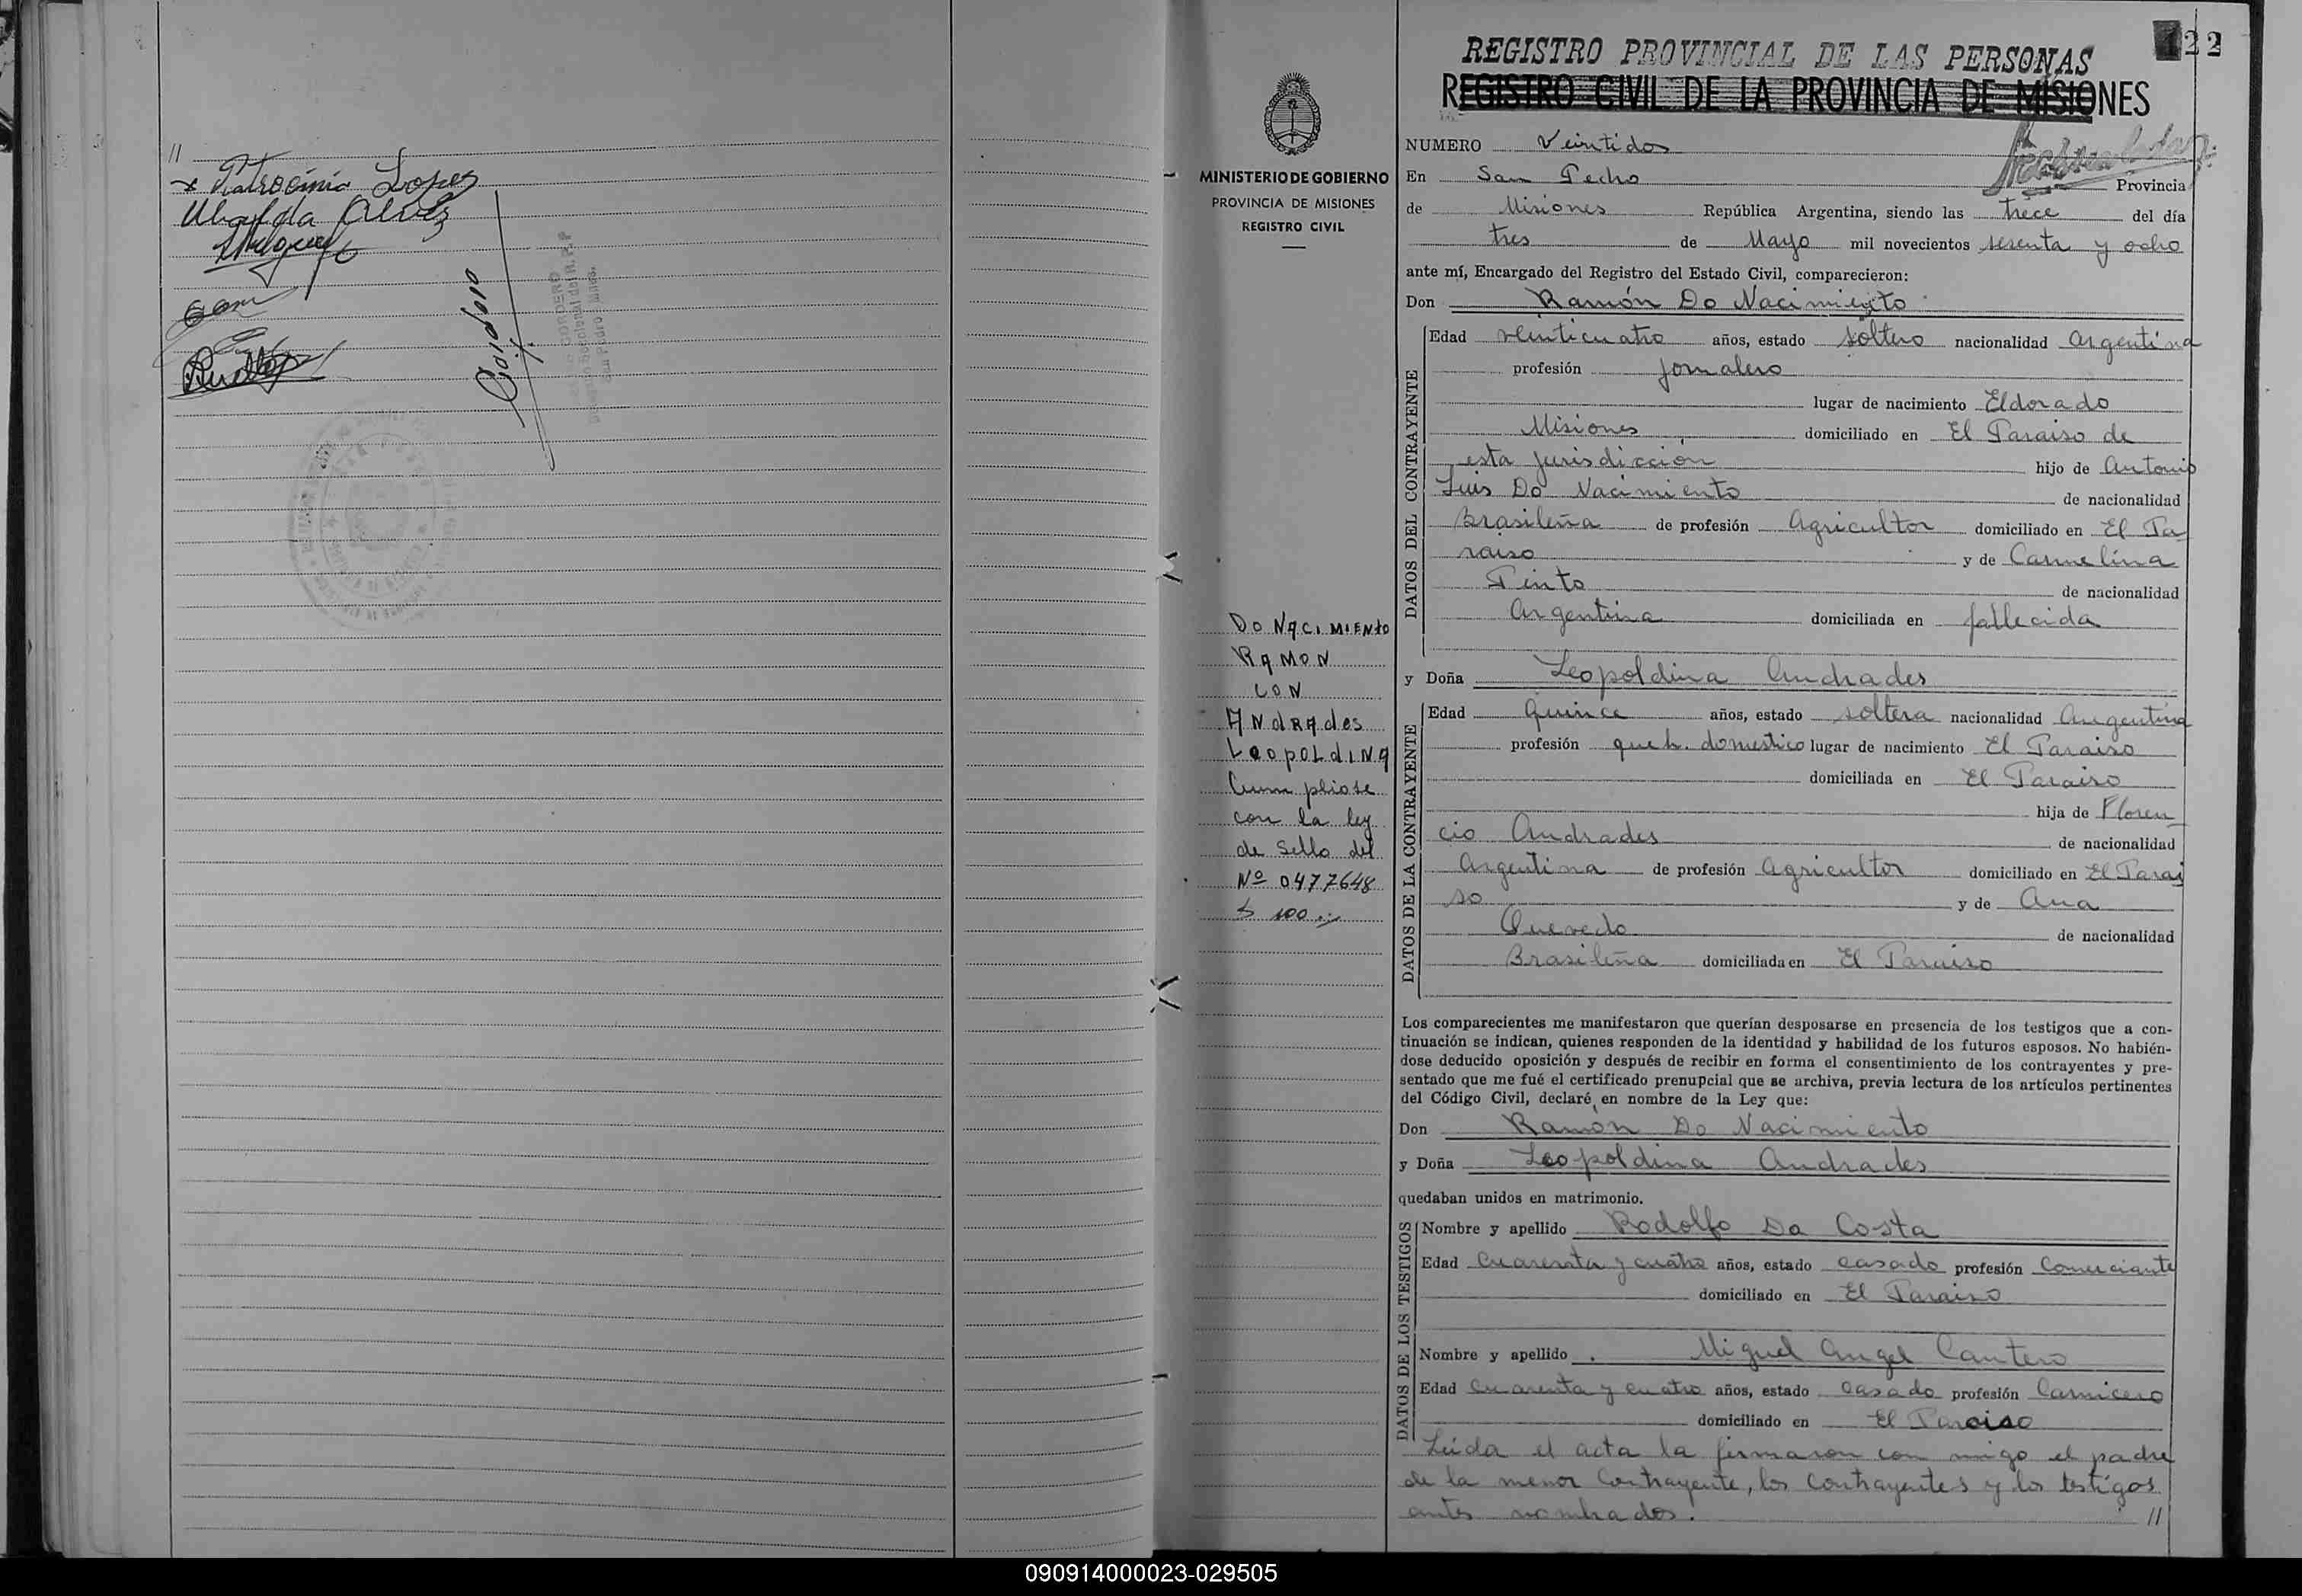 //
x Patrocinia Lopez
Ubalda Alvez
CORDERO
San Pedro Mnes.
MINISTERIO DE GOBIERNO
PROVINCIA DE MISIONES
REGISTRO CIVIL
DO NACIMIENTO
RAMON
CON
ANdRAdes
LeopoLdINA
Cumpliose
con la ley
de Sello del
Nº 0477648
$ 100.
22
REGISTRO PROVINCIAL DE LAS PERSONAS
REGISTRO CIVIL DE LA PROVINCIA DE MISIONES
NUMERO Veintidos
En San Pedro Provincia
de Misiones República Argentina, siendo las trece del día
tres de Mayo mil novecientos sesenta y ocho
ante mí, Encargado del Registro del Estado Civil, comparecieron:
Don Ramón Do Nacimiento
DATOS DEL CONTRAYENTE
Edad veinticuatro años, estado soltero nacionalidad Argentina
profesión jornalero
lugar de nacimiento Eldorado
Misiones domiciliado en El Paraiso de
esta jurisdicción hijo de Antonio
Luis Do Nacimiento de nacionalidad
Brasileña de profesión Agricultor domiciliado en El Pa
raiso y de Carmelina
Pinto de nacionalidad
Argentina domiciliada en fallecida
y Doña Leopoldina Andrades
DATOS DE LA CONTRAYENTE
Edad quince años, estado soltera nacionalidad Argentina
profesión queh. domestico lugar de nacimiento El Paraiso
domiciliada en El Paraiso
hija de Floren
cio Andrades de nacionalidad
Argentina de profesión Agricultor domiciliado en El Parai
so y de Ana
Quevedo de nacionalidad
Brasileña domiciliada en El Paraiso
Los comparecientes me manifestaron que querían desposarse en presencia de los testigos que a con-
tinuación se indican, quienes responden de la identidad y habilidad de los futuros esposos. No habién-
dose deducido oposición y después de recibir en forma el consentimiento de los contrayentes y pre-
sentado que me fué el certificado prenupcial que se archiva, previa lectura de los artículos pertinentes
del Código Civil, declaré en nombre de la Ley que:
Don Ramon Do Nacimiento
y Doña Leopoldina Andrades
quedaban unidos en matrimonio.
DATOS DE LOS TESTIGOS
Nombre y apellido Rodolfo Da Costa
Edad Cuarenta y cuatro años, estado casado profesión Comerciante
domiciliado en El Paraiso
Nombre y apellido Miguel Angel Cantero
Edad Cuarenta y cuatro años, estado casado profesión Carnicero
domiciliado en El Paraiso
Leida el acta la firmaron con migo el padre
de la menor Contrayente, los Contrayentes y los testigos
antes nombrados. //
090914000023-029505